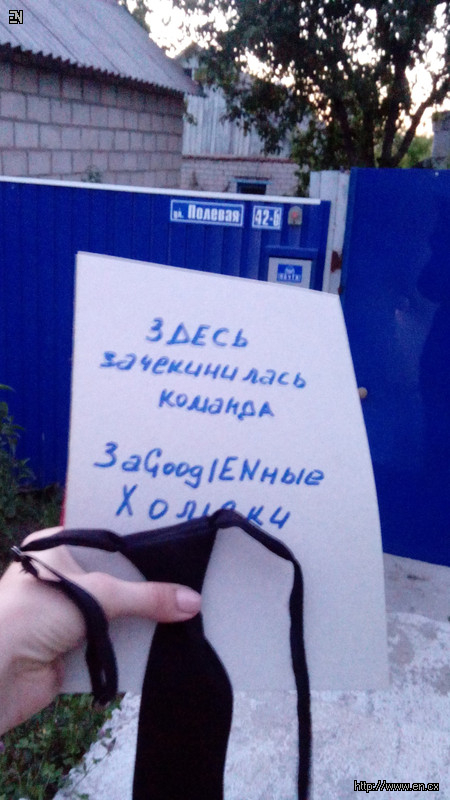 EN
ул. Полевая 42-б
ЗДЕСЬ
зачекинилась
команда
ЗаGooglENные
http://www.en.cx